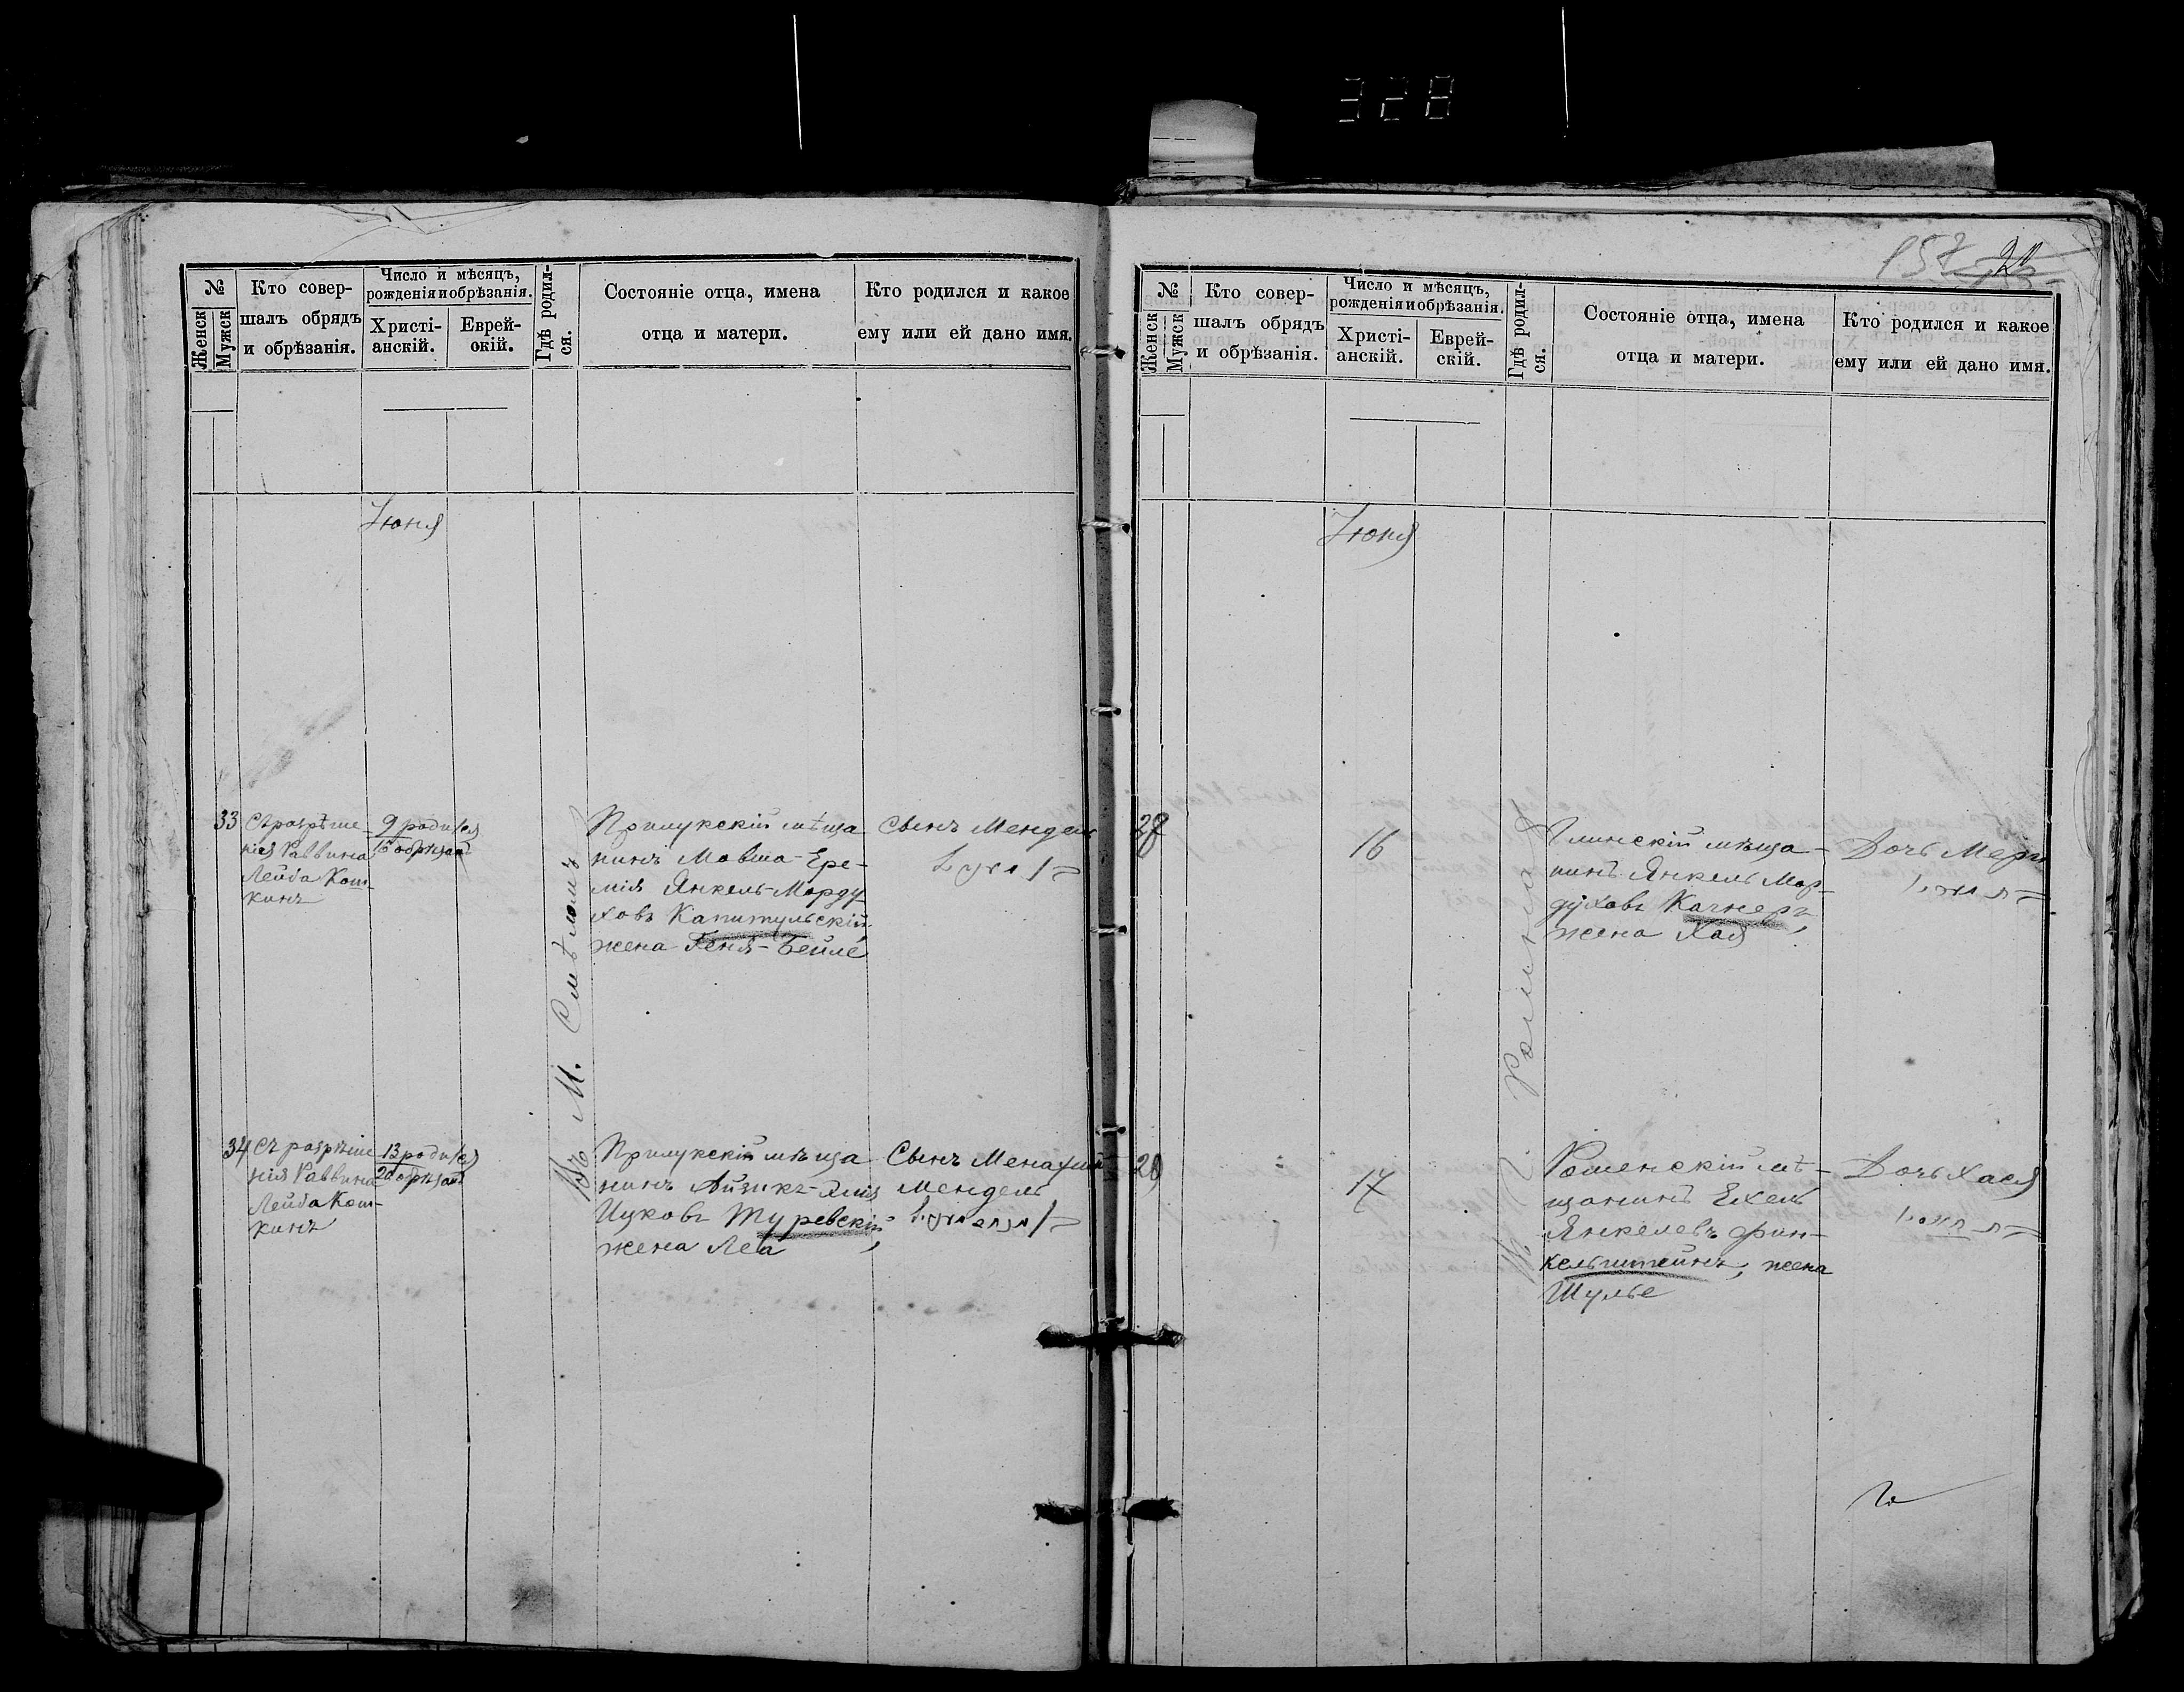 328
157
№
Женск
Мужск
Кто совер-
шалъ обрядъ
и обрѣзанія.
Число и мѣсяцъ,
рожденія и обрѣзанія.
Христі-
анскій.
Еврей-
скій.
Гдѣ родил-
ся.
Состояніе отца, имена
отца и матери.
Кто родился и какое
ему или ей дано имя.
Іюня
33
Съ разрѣше
нія Раввина
Лейба Кот-
кинъ
9 родился
16 обрѣзанъ
Въ М. Смѣломъ
Прилукскій мѣща
нинъ Мовша-Ере-
мія Янкель-Морду
ховъ Капитульскій
жена Геня-Бейле
Сынъ Мендель
34
Съ разрѣше
нія Раввина
Лейба Кот-
кинъ
13 родился
20 обрѣзанъ
Прилукскій мѣща
нинъ Айзикъ-
Ицковъ Туревскій,
жена Леа
Сынъ Менахимъ
Мендель
№
Женск
Мужск
Кто совер-
шалъ обрядъ
и обрѣзанія.
Число и мѣсяцъ,
рожденія и обрѣзанія.
Христі-
анскій.
Еврей-
скій.
Гдѣ родил-
ся.
Состояніе отца, имена
отца и матери.
Кто родился и какое
ему или ей дано имя.
Іюня
28
16
Глинскій мѣща-
нинъ Янкель Мор-
духовъ Качнеръ,
жена Хая
Дочь Мера
29
17
Роменскій мѣ-
щанинъ Ехель
Янкелевъ Фин-
кельштейнъ, жена
Шулье
Дочь Хася